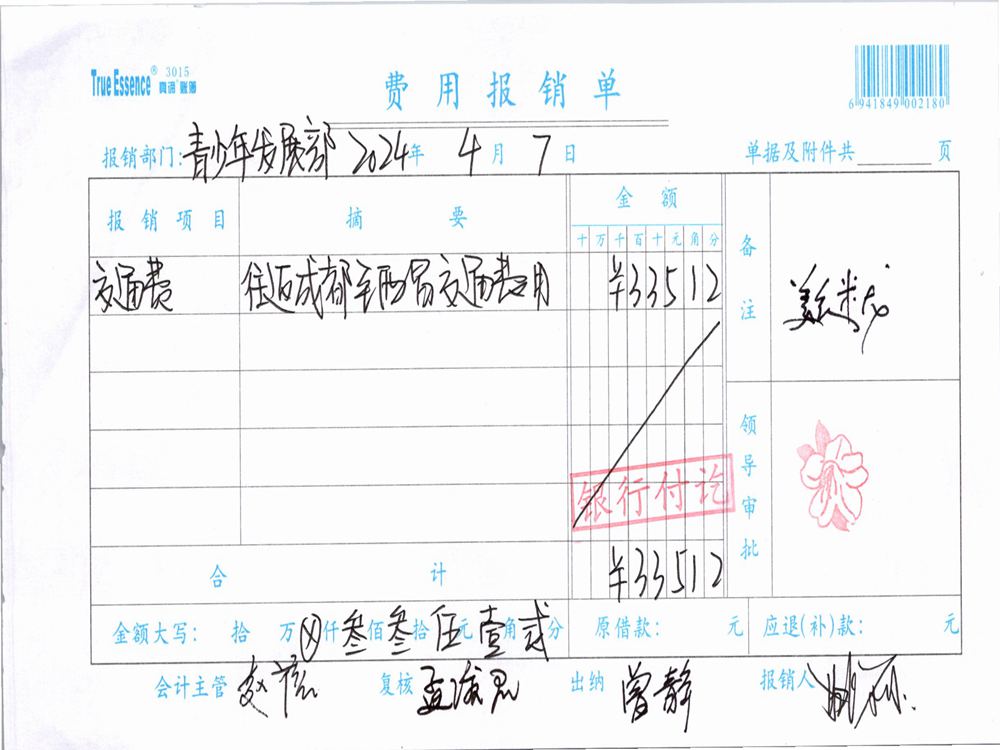 True Essence® 3015
费用报销单
6 941849 002180
报销部门：青少年发展部 2024年 4月 7日 单据及附件共 页
报销项目 摘要 金额 备注
十 万 千 百 十 元 角 分
交通费 往返成都至西昌交通费用 ¥33512
银行付讫
领导审批
合计 ¥33512
金额大写： 拾 万ⓧ仟叁佰叁拾伍元壹角贰分 原借款： 元 应退（补）款： 元
会计主管 复核 出纳 曾静 报销人